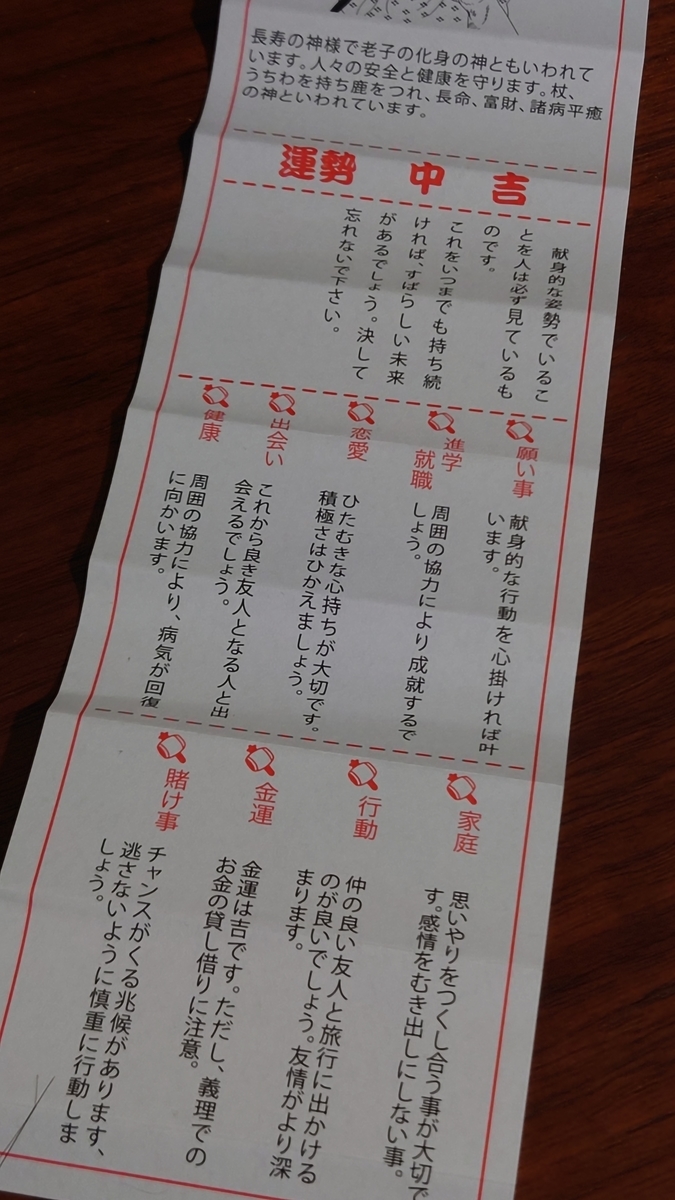 長寿の神様で老子の化身の神ともいわれて
います。人々の安全と健康を守ります。杖、
うちわを持ち鹿をつれ、長命、富財、諸病平癒
の神といわれています。
運勢 中吉
献身的な姿勢でいるこ
とを人は必ず見ているも
のです。
これをいつまでも持ち続
ければ、すばらしい未来
があるでしょう。決して
忘れないで下さい。
願い事
献身的な行動を心掛ければ叶
います。
進学
就職
周囲の協力により成就するで
しょう。
恋愛
ひたむきな心持ちが大切です。
積極さはひかえましょう。
出会い
これから良き友人となる人と出
会えるでしょう。
健康
周囲の協力により、病気が回復
に向かいます。
家庭
思いやりをつくし合う事が大切で
す。感情をむき出しにしない事。
行動
仲の良い友人と旅行に出かける
のが良いでしょう。友情がより深
まります。
金運
金運は吉です。ただし、義理での
お金の貸し借りに注意。
賭け事
チャンスがくる兆候があります、
逃さないように慎重に行動しま
しょう。